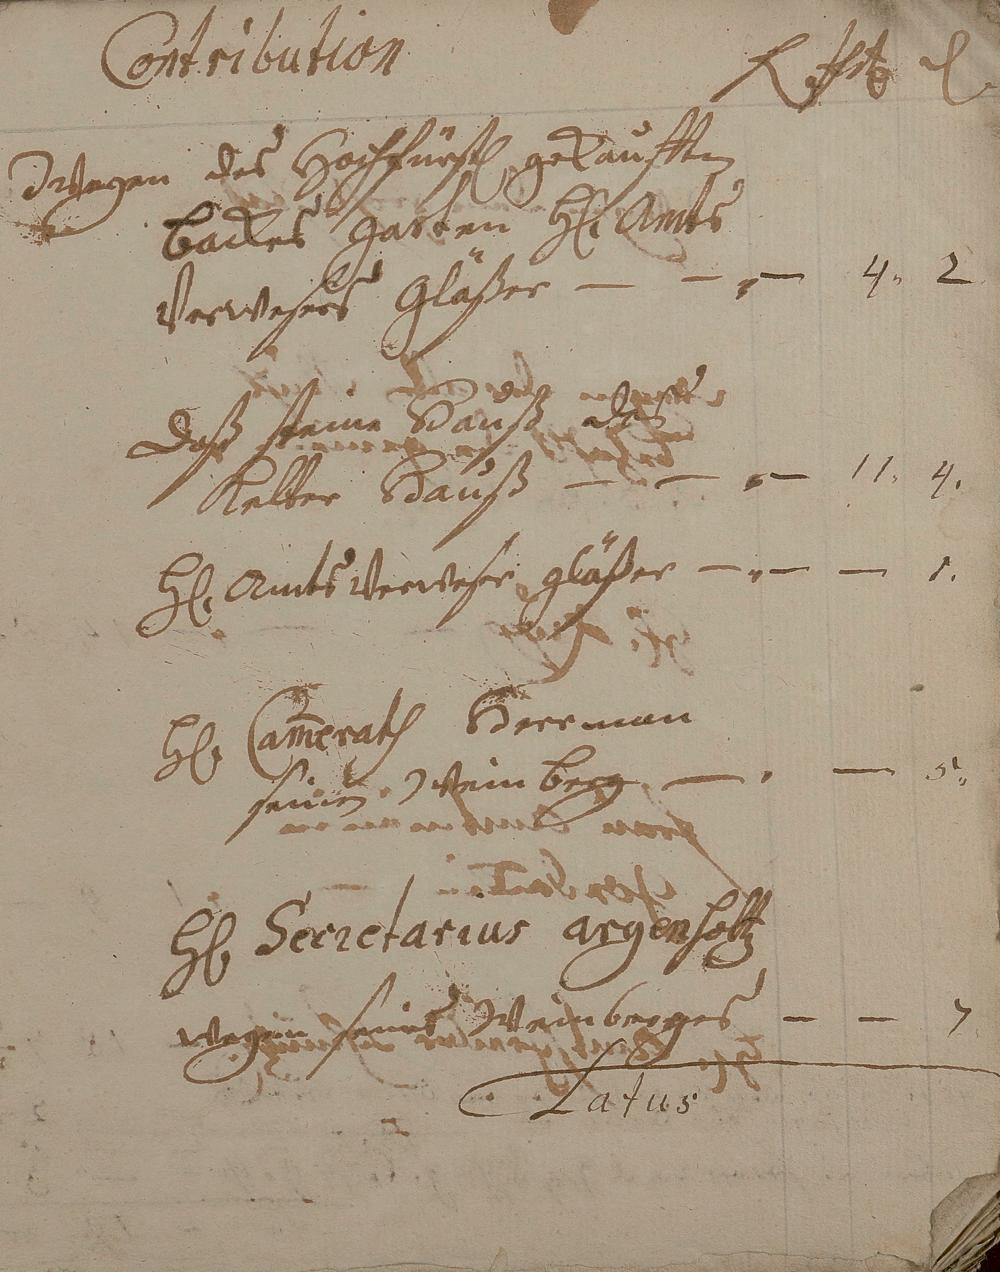 Contribution R. gl. d.
Wegen des Hochfürstl. gekaufften
Backes garten H. Amts
Verwesers Gläßer — — „— 4. 2
Daß steine Hauß das
Kelter Hauß — — „— 11. 4.
H. Amts Verweser gläßer —„— — 1.
H. Camerath Herrman
seinen Weinberg — „ — 5.
H. Secretarius argenholtz
wegen seines Weinberges — — 7
Latus